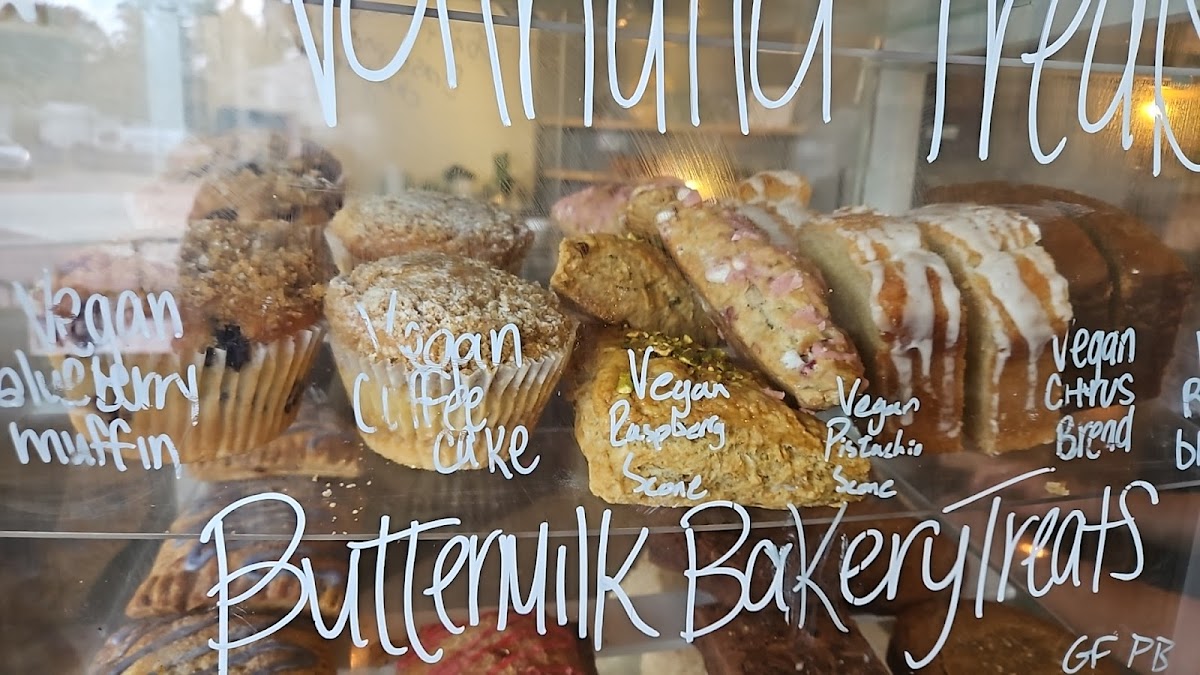 Vegan
Blueberry
muffin
Vegan
Coffee
cake
Vegan
Raspberry
Scone
Vegan
Pistachio
Scone
Vegan
Citrus
Bread
Buttermilk Bakery Treats
GF PB